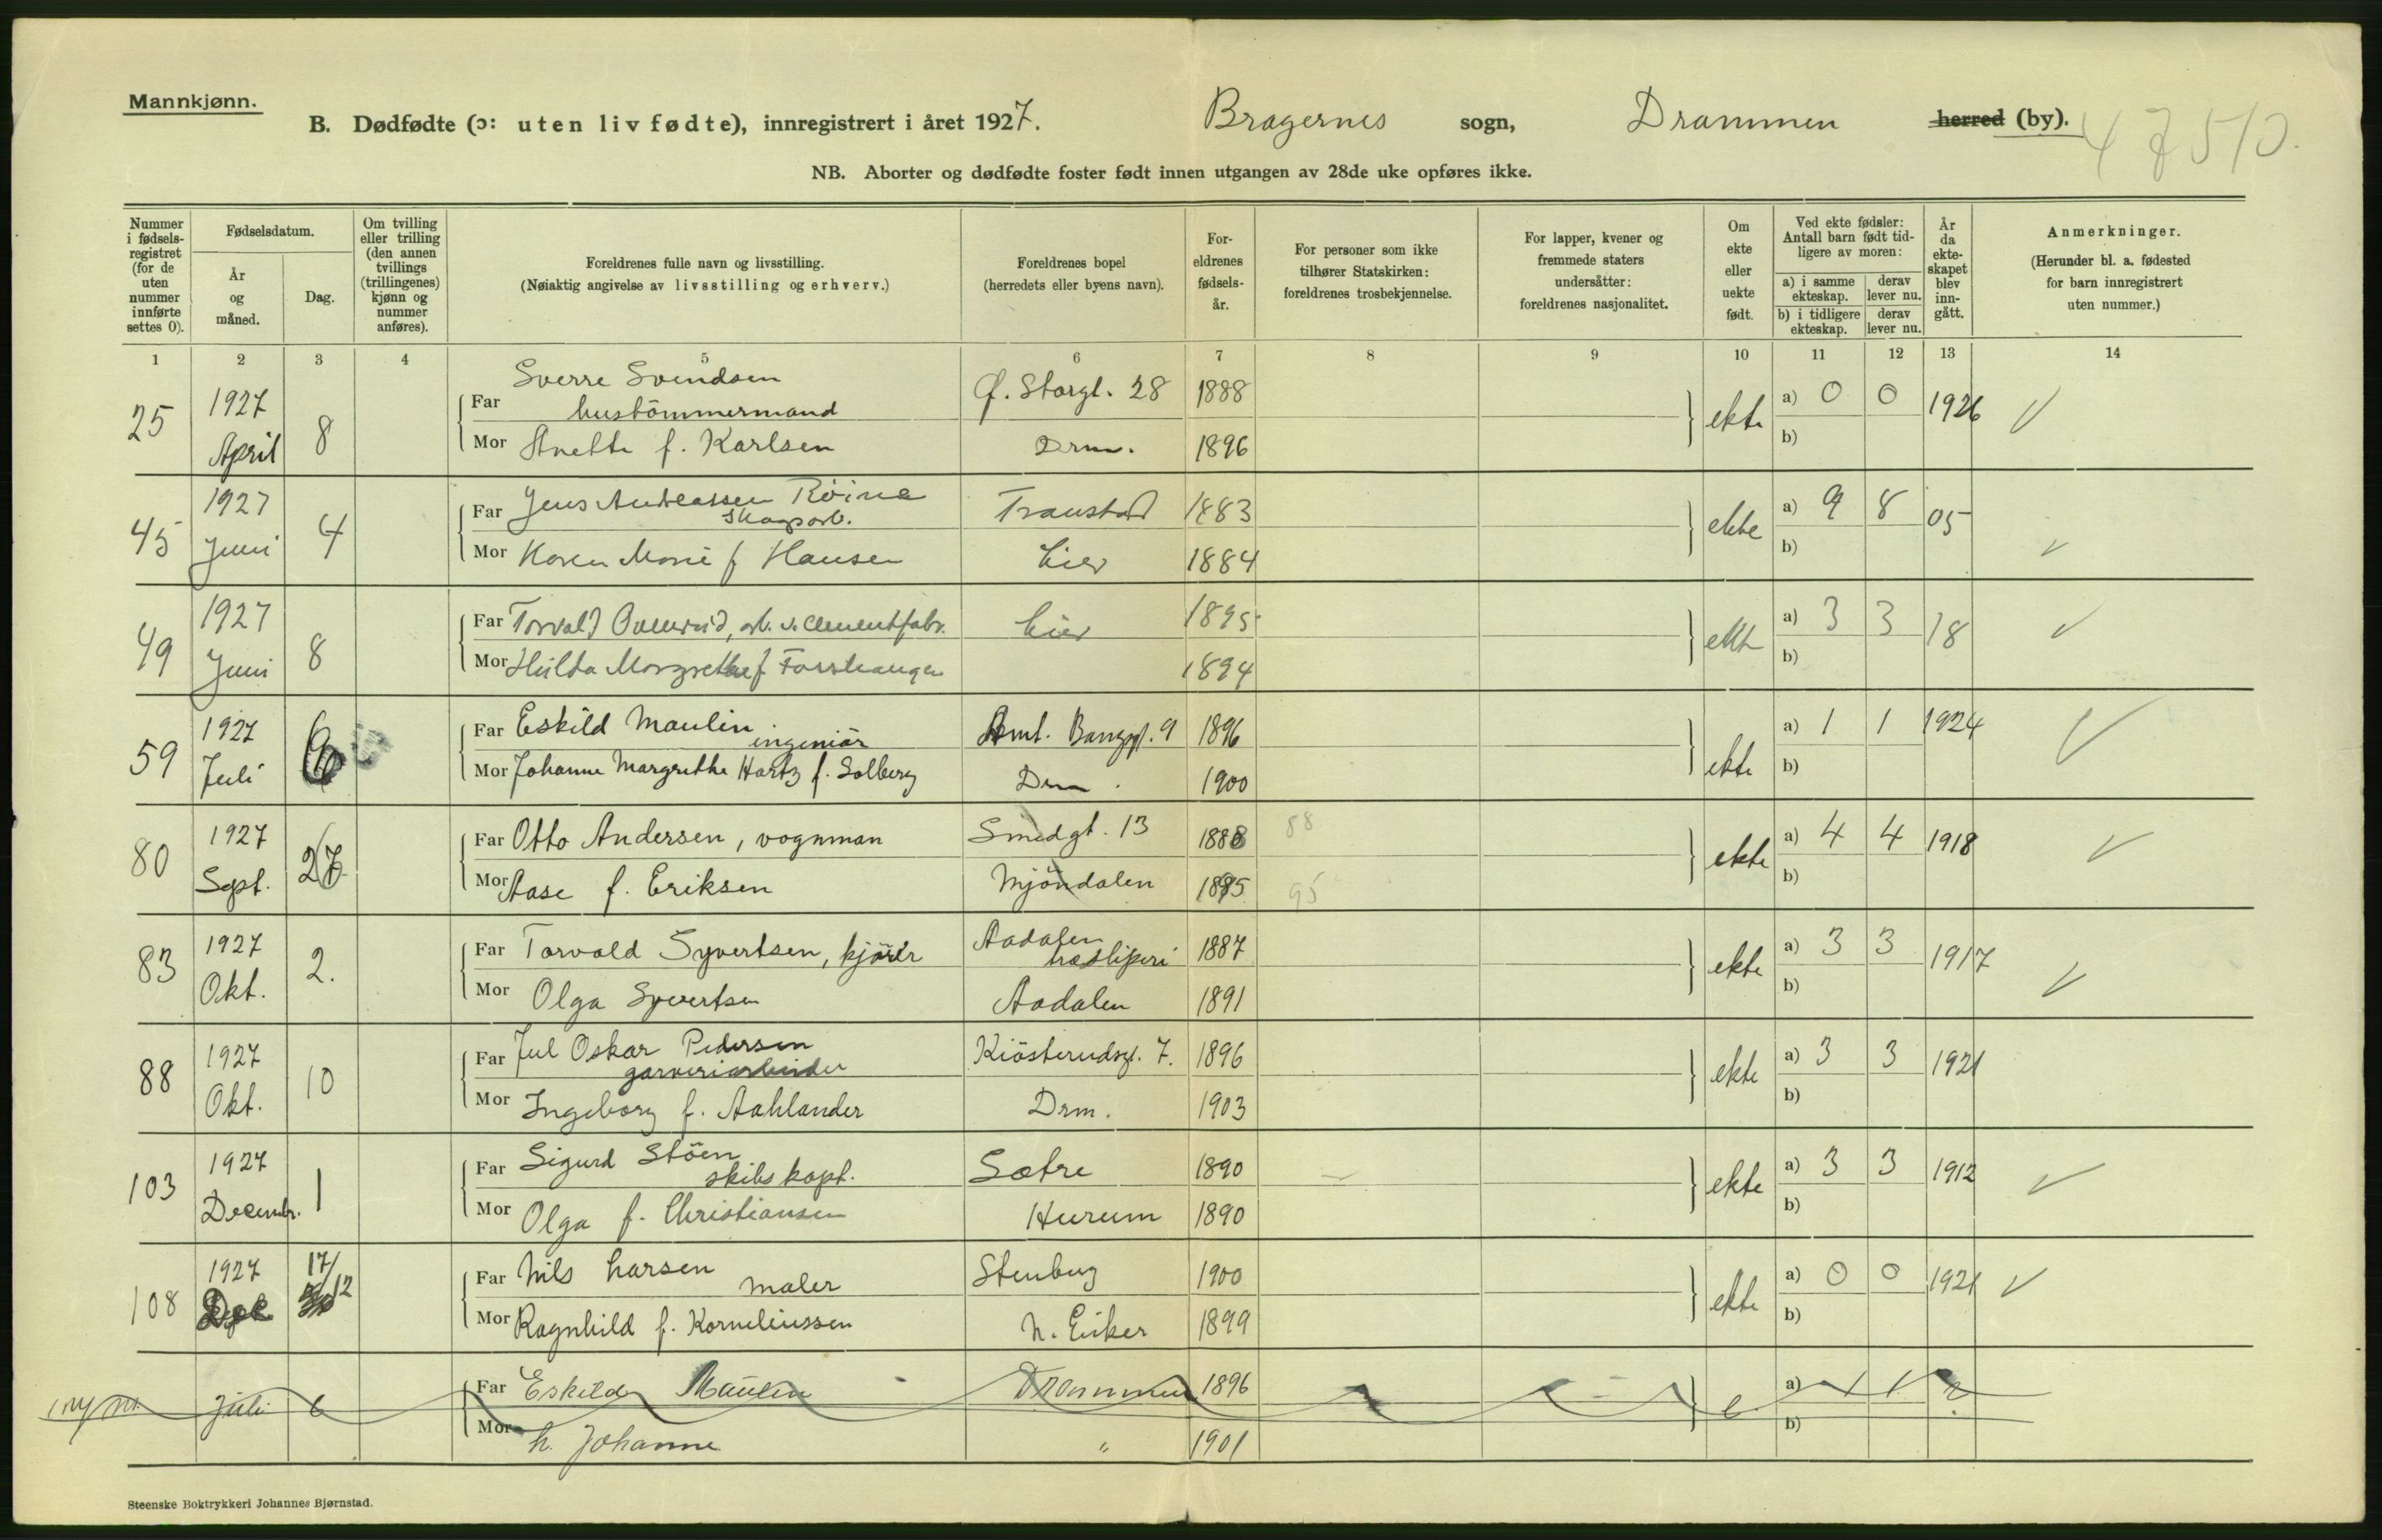 Mannkjønn.
B. Dødfødte (ɔ: uten liv fødte), innregistrert i året 1927. Bragernes sogn, Drammen herred (by).
47510.
NB. Aborter og dødfødte foster født innen utgangen av 28de uke opføres ikke.
Nummer i fødselsregistret (for de uten nummer innførte settes 0).
Fødselsdatum.
År og måned.
Dag.
Om tvilling eller trilling (den annen tvillings (trillingenes) kjønn og nummer anføres).
Foreldrenes fulle navn og livsstilling.
(Nøiaktig angivelse av livsstilling og erhverv.)
Foreldrenes bopel
(herredets eller byens navn).
Foreldrenes fødselsår.
For personer som ikke tilhører Statskirken: foreldrenes trosbekjennelse.
For lapper, kvener og fremmede staters undersåtter: foreldrenes nasjonalitet.
Om ekte eller uekte født.
Ved ekte fødsler: Antall barn født tidligere av moren:
a) i samme ekteskap. derav lever nu.
b) i tidligere ekteskap. derav lever nu.
År da ekteskapet blev inngått.
Anmerkninger.
(Herunder bl. a. fødested for barn innregistrert uten nummer.)
1 2 3 4 5 6 7 8 9 10 11 12 13 14
25 1927 April 8
Far Sverre Svendsen hustömmermand Ø. Storgt. 28 1888
Mor Anette f. Karlsen Drm. 1896
ekte a) 0 0 1926
b)
45 1927 Juni 4
Far Jens Andreassen Röine skogsarb. Traustad 1883
Mor Karen Marie f Hansen Lier 1884
ekte a) 9 8 05
b)
49 1927 Juni 8
Far Torvald arb. v. cementfabr. Lier 1895
Mor Hilda Margrethe f 1894
ekte a) 3 3 18
b)
59 1927 Juli 6
Far Eskild Maulin ingeniör Amt. Bangsgt. 9 1896
Mor Johanne Margrethe Hartz f. Solberg Drm. 1900
ekte a) 1 1 1924
b)
80 1927 Sept. 27
Far Otto Andersen, vognman Smedgt. 13 1888 88
Mor Aase f. Eriksen Mjöndalen 1895 95
ekte a) 4 4 1918
b)
83 1927 Okt. 2.
Far Torvald Syvertsen, kjörer Aadalen træsliperi 1887
Mor Olga Syvertsen Aadalen 1891
ekte a) 3 3 1917
b)
88 1927 Okt. 10
Far Jul Oskar Pedersen garveriarbeider Kiösterudsgt. 7. 1896
Mor Ingeborg f. Aahlander Drm. 1903
ekte a) 3 3 1921
b)
103 1927 Decembr. 1
Far Sigurd Stöen skibskapt. Sætre 1890
Mor Olga f. Christiansen Hurum 1890
ekte a) 3 3 1912
b)
108 1927 17/12
Far Nils Larsen maler Stenberg 1900
Mor Ragnhild f. Korneliussen N. Eiker 1899
ekte a) 0 0 1921
b)
Juli 6
Far Eskild Maulin Drammen 1896
Mor h. Johanne " 1901
e. a) 1 1 ?
b)
Steenske Boktrykkeri Johannes Bjørnstad.